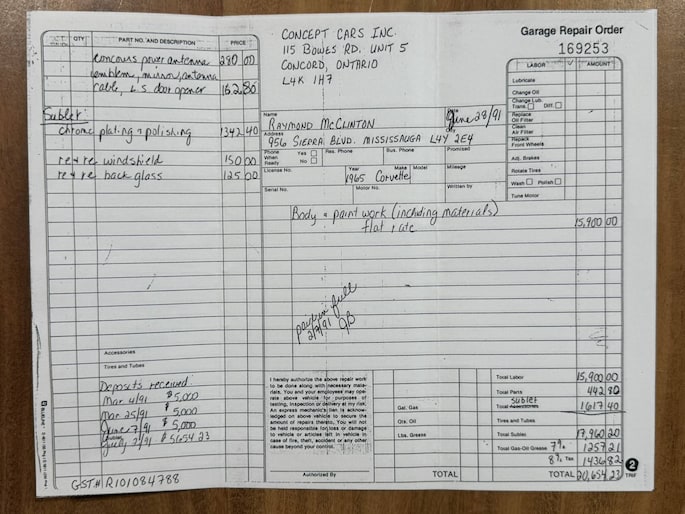 QTY PART NO. AND DESCRIPTION PRICE
concours power antenna 280 00
emblem, mirror, antenna
cable, L.S. door opener 162.80
Sublet:
chrome plating & polishing 1342 40
re & re windshield 150 00
re & re back glass 125 00
Accessories
Tires and Tubes
Deposits received
Mar 4/91 $5,000
Mar 25/91 $5,000
June 7/91 $5,000
July 2/91 $5654.23
GST# R101084788
CONCEPT CARS INC.
115 BOWES RD. UNIT 5
CONCORD, ONTARIO
L4K 1H7
Garage Repair Order
169253
LABOR AMOUNT
Lubricate
Change Oil
Change Lub.
Trans. Diff.
Replace
Oil Filter
Clean
Air Filter
Repack
Front Wheels
Adj. Brakes
Rotate Tires
Wash Polish
Tune Motor
Name
RAYMOND McCLINTON
June 28/91
Address
956 SIERRA BLVD. MISSISSAUGA L4Y 2E4
Phone When Ready Yes No
Res. Phone Bus. Phone Promised
License No. Year Make Model Mileage
1965 Corvette
Serial No. Motor No. Written by
Body & paint work (including materials) 15,900 00
flat rate
paid in full
2/7/91
I hereby authorize the above repair work
to be done along with necessary mate-
rials. You and your employees may ope-
rate above vehicle for purposes of
testing, inspection or delivery at my risk.
An express mechanic's lien is acknow-
ledged on above vehicle to secure the
amount of repairs thereto. You will not
be held responsible for loss or damage
to vehicle or articles left in vehicle in
case of fire, theft, accident or any other
cause beyond your control.
Authorized By
Gal. Gas
Qts. Oil
Lbs. Grease
TOTAL
Total Labor 15,900 00
Total Parts 442 80
sublet
Total Accessories 1617 40
Tires and Tubes
Total Sublet 17,960 20
Total Gas-Oil Grease 7% 1257 21
8% Tax 1436 82
TOTAL 20,654 23
2